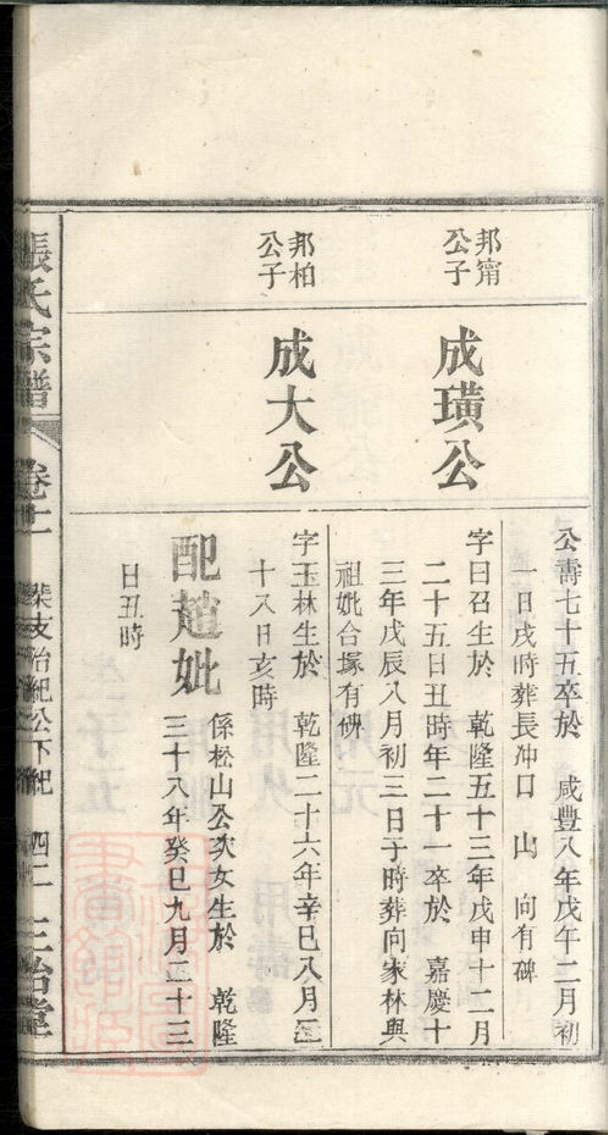 公壽七十五卒於 咸豐八年戊午二月初
一日戌時葬長冲口 山 向有碑
邦甯
公子
成璜公
字曰召生於 乾隆五十三年戊申十二月
二十五日丑時年二十一卒於 嘉慶十
三年戊辰八月初三日子時葬向家林與
祖妣合塚有碑
邦柏
公子
成大公
字玉林生於 乾隆二十六年辛巳八月
十八日亥時
配趙妣
係松山公次女生於 乾隆
三十八年癸巳九月二十三
日丑時
張氏宗譜
卷
支治紀公下紀
四二
三治堂